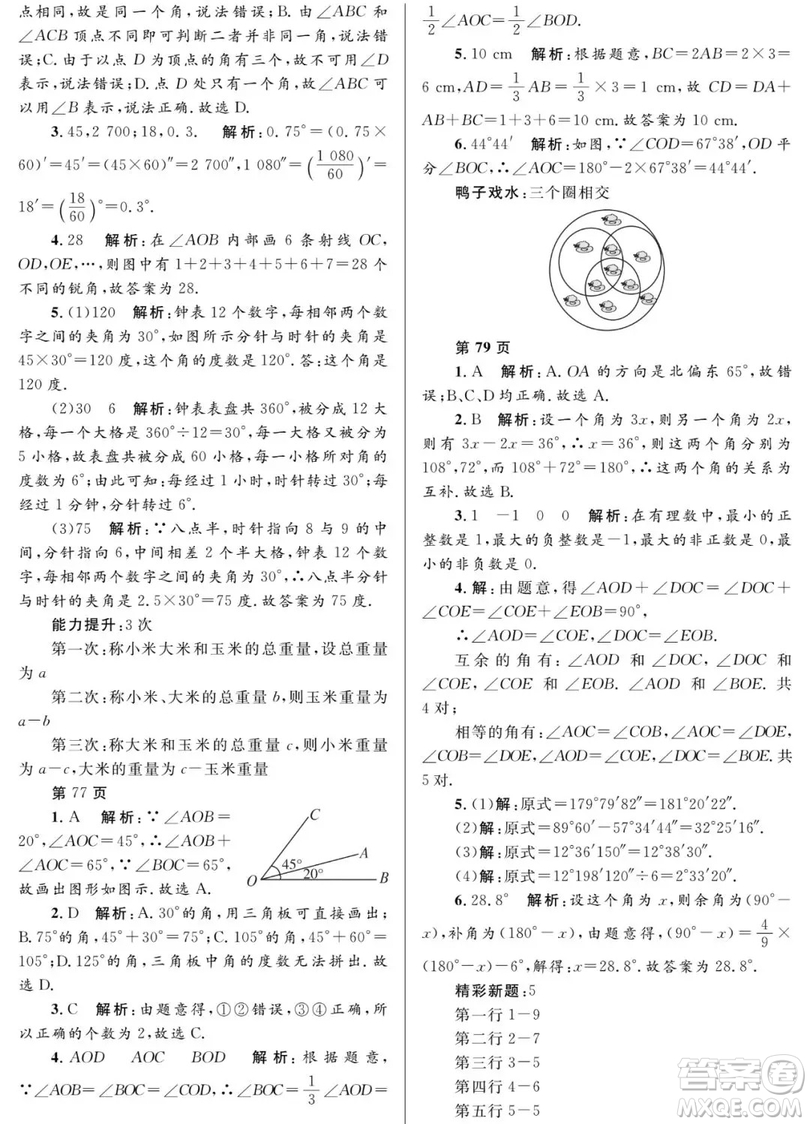 点相同，故是同一个角，说法错误；B. 由∠ABC 和
∠ACB 顶点不同即可判断二者并非同一角，说法错
误；C. 由于以点 D 为顶点的角有三个，故不可用∠D
表示，说法错误；D. 点 D 处只有一个角，故∠ABC 可
以用∠B 表示，说法正确. 故选 D.
3. 45，2 700；18，0. 3. 解析：0. 75°＝(0. 75×
60)′＝45′＝(45×60)″＝2 700″，1 080″＝(1 080/60)′＝
18′＝(18/60)°＝0. 3°.
4. 28 解析：在∠AOB 内部画 6 条射线 OC，
OD，OE，…，则图中有 1＋2＋3＋4＋5＋6＋7＝28 个
不同的锐角，故答案为 28.
5. (1)120 解析：钟表 12 个数字，每相邻两个数
字之间的夹角为 30°，如图所示分针与时针的夹角是
45×30°＝120°，这个角的度数是 120°. 答：这个角是
120 度.
(2)30 6 解析：钟表表盘共 360°，被分成 12 大
格，每一大格是 360°÷12＝30°，每个大格又被分成
5 小格，故表盘共被分成 60 小格，每一小格所对角的
度数为 6°；由此可知：每经过 1 小时，时针转过 30°；每
经过 1 分钟，分针转过 6°.
(3)75 解析：∵八点半，时针指向 8 与 9 的中
间，分针指向 6 之间有两个半大格，钟表 12 个数字，每
相邻两个数字之间的夹角为 30°，∴八点半分针
与时针的夹角是 2. 5×30°＝75°. 故答案为 75 度.
能力提升：3 次
第一次：称小米大米和玉米的总重量，设总重量
为 a
第二次：称小米、大米的总重量 b，则玉米重量为
a－b
第三次：称大米和玉米的总重量 c，则小米的重量
为 a－c，大米的重量为 b－(a－c)
第 77 页
1. A 解析：∵∠AOB＝
20°，∠AOC＝45°，∴∠AOB＋
∠AOC＝65°，∵∠BOC＝65°，
故画出图形如图示. 故选 A.
C
A
45°
20°
O
B
2. D 解析：A. 30°的角，用三角板可直接画出；
B. 75°的角，45°＋30°＝75°；C. 105°的角，45°＋60°＝
105°；D. 125°的角，三角板中角的度数无法拼出. 故
选 D.
3. C 解析：由题意得，①②错误，③④正确，所
以正确的个数为 2，故选 C.
4. AOD AOC BOD 解析：根据题意，
∵∠AOB＝∠BOC＝∠COD，∴∠BOC＝1/3∠AOD＝
1/2∠AOC＝1/2∠BOD.
5. 10 cm 解析：根据题意，BC＝2AB＝2×3＝
6 cm，AD＝1/3AB＝1/3×3＝1 cm，故 CD＝DA＋
AB＋BC＝1＋3＋6＝10 cm. 故答案为 10 cm.
6. 44°44′ 解析：如图，∵∠COD＝67°38′，OD 平
分∠BOC，∴∠AOC＝180°－2×67°38′＝44°44′.
鸭子戏水：三个圈相交
第 79 页
1. A 解析：A. OA 的方向是北偏东 65°，故错
误；B、C、D均正确. 故选 A.
2. B 解析：设一个角为 3x，则另一个角为 2x，
则有 3x－2x＝36°，∴x＝36°，则这两个角分别为
108°，72°，而 108°＋72°＝180°∴这两个角的关系为
互补. 故选 B.
3. 1 －1 0 0 解析：在有理数中，最小的正
整数是 1，最大的负整数是－1，最大的非正数是 0，最
小的非负数是 0.
4. 解：由题意，得∠AOD＋∠DOC＝∠DOC＋
∠COE＝∠COE＋∠EOB＝90°，
∴∠AOD＝∠COE，∠DOC＝∠EOB.
互余的角有：∠AOD 和∠DOC，∠DOC 和
∠COE，∠COE 和∠BOE，∠AOD 和∠BOE. 共
4 对；
相等的角有：∠AOC＝∠COB，∠AOC＝∠DOE，
∠COB＝∠DOE，∠AOD＝∠COE，∠DOC＝∠BOE. 共
5 对.
5. (1)解：原式＝179°79′82″＝181°20′22″.
(2)解：原式＝89°60′－51°37′＝38°23′.
(3)解：原式＝12°36′150″＝12°38′30″.
(4)解：原式＝12°198′120″÷6＝2°33′20″.
6. 28. 8° 解析：设这个角为 x，则余角为(90°－
x)，补角为(180°－x)，由题意得，(90°－x)＝4/9×
(180°－x)－6°，解得：x＝28. 8°. 故答案为 28. 8°.
精彩新题：5
第一行 1－9
第二行 2－7
第三行 3－5
第四行 4－6
第五行 5－5
答案圈
MXQE.COM